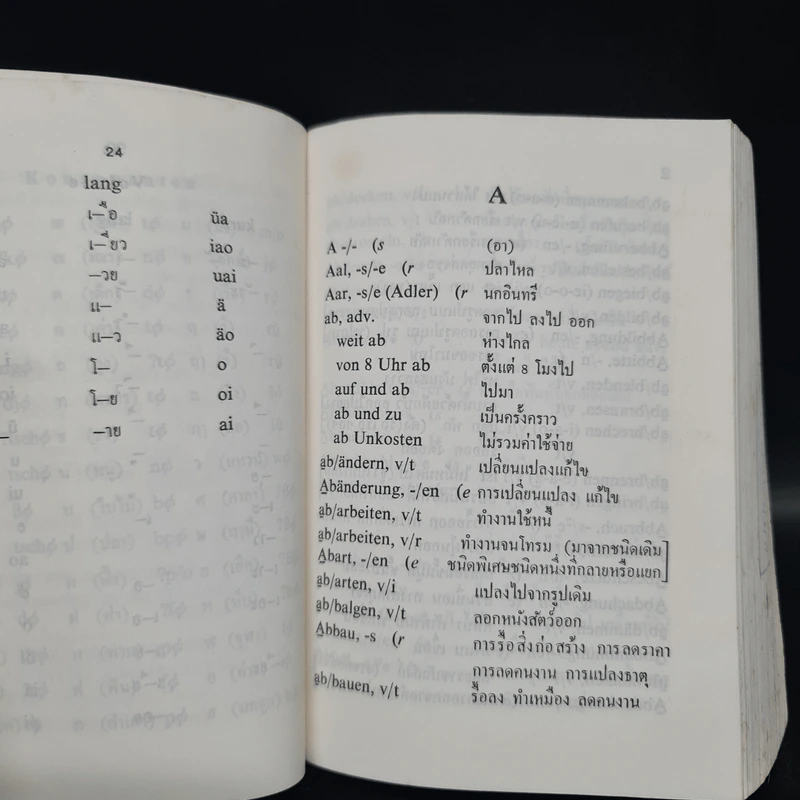 24
lang
เ–ือ üa
เ–ียว iao
–วย uai
แ– ä
แ–ว äo
โ– o
โ–ย oi
–าย ai
A
A -/- (s (อา)
Aal, -s/-e (r ปลาไหล
Aar, -s/e (Adler) (r นกอินทรี
ab, adv. จากไป ลงไป ออก
weit ab ห่างไกล
von 8 Uhr ab ตั้งแต่ 8 โมงไป
auf und ab ไปมา
ab und zu เป็นครั้งคราว
ab Unkosten ไม่รวมค่าใช้จ่าย
ab/ändern, v/t เปลี่ยนแปลงแก้ไข
Abänderung, -/en (e การเปลี่ยนแปลง แก้ไข
ab/arbeiten, v/t ทำงานใช้หนี้
ab/arbeiten, v/r ทำงานจนโทรม (มาจากชนิดเดิม
Abart, -/en (e ชนิดพิเศษชนิดหนึ่งที่กลายหรือแยก]
ab/arten, v/i แปลงไปจากรูปเดิม
ab/balgen, v/t ลอกหนังสัตว์ออก
Abbau, -s (r การรื้อสิ่งก่อสร้าง การลดราคา
การลดคนงาน การแปลงธาตุ
ab/bauen, v/t รื้อลง ทำเหมือง ลดคนงาน